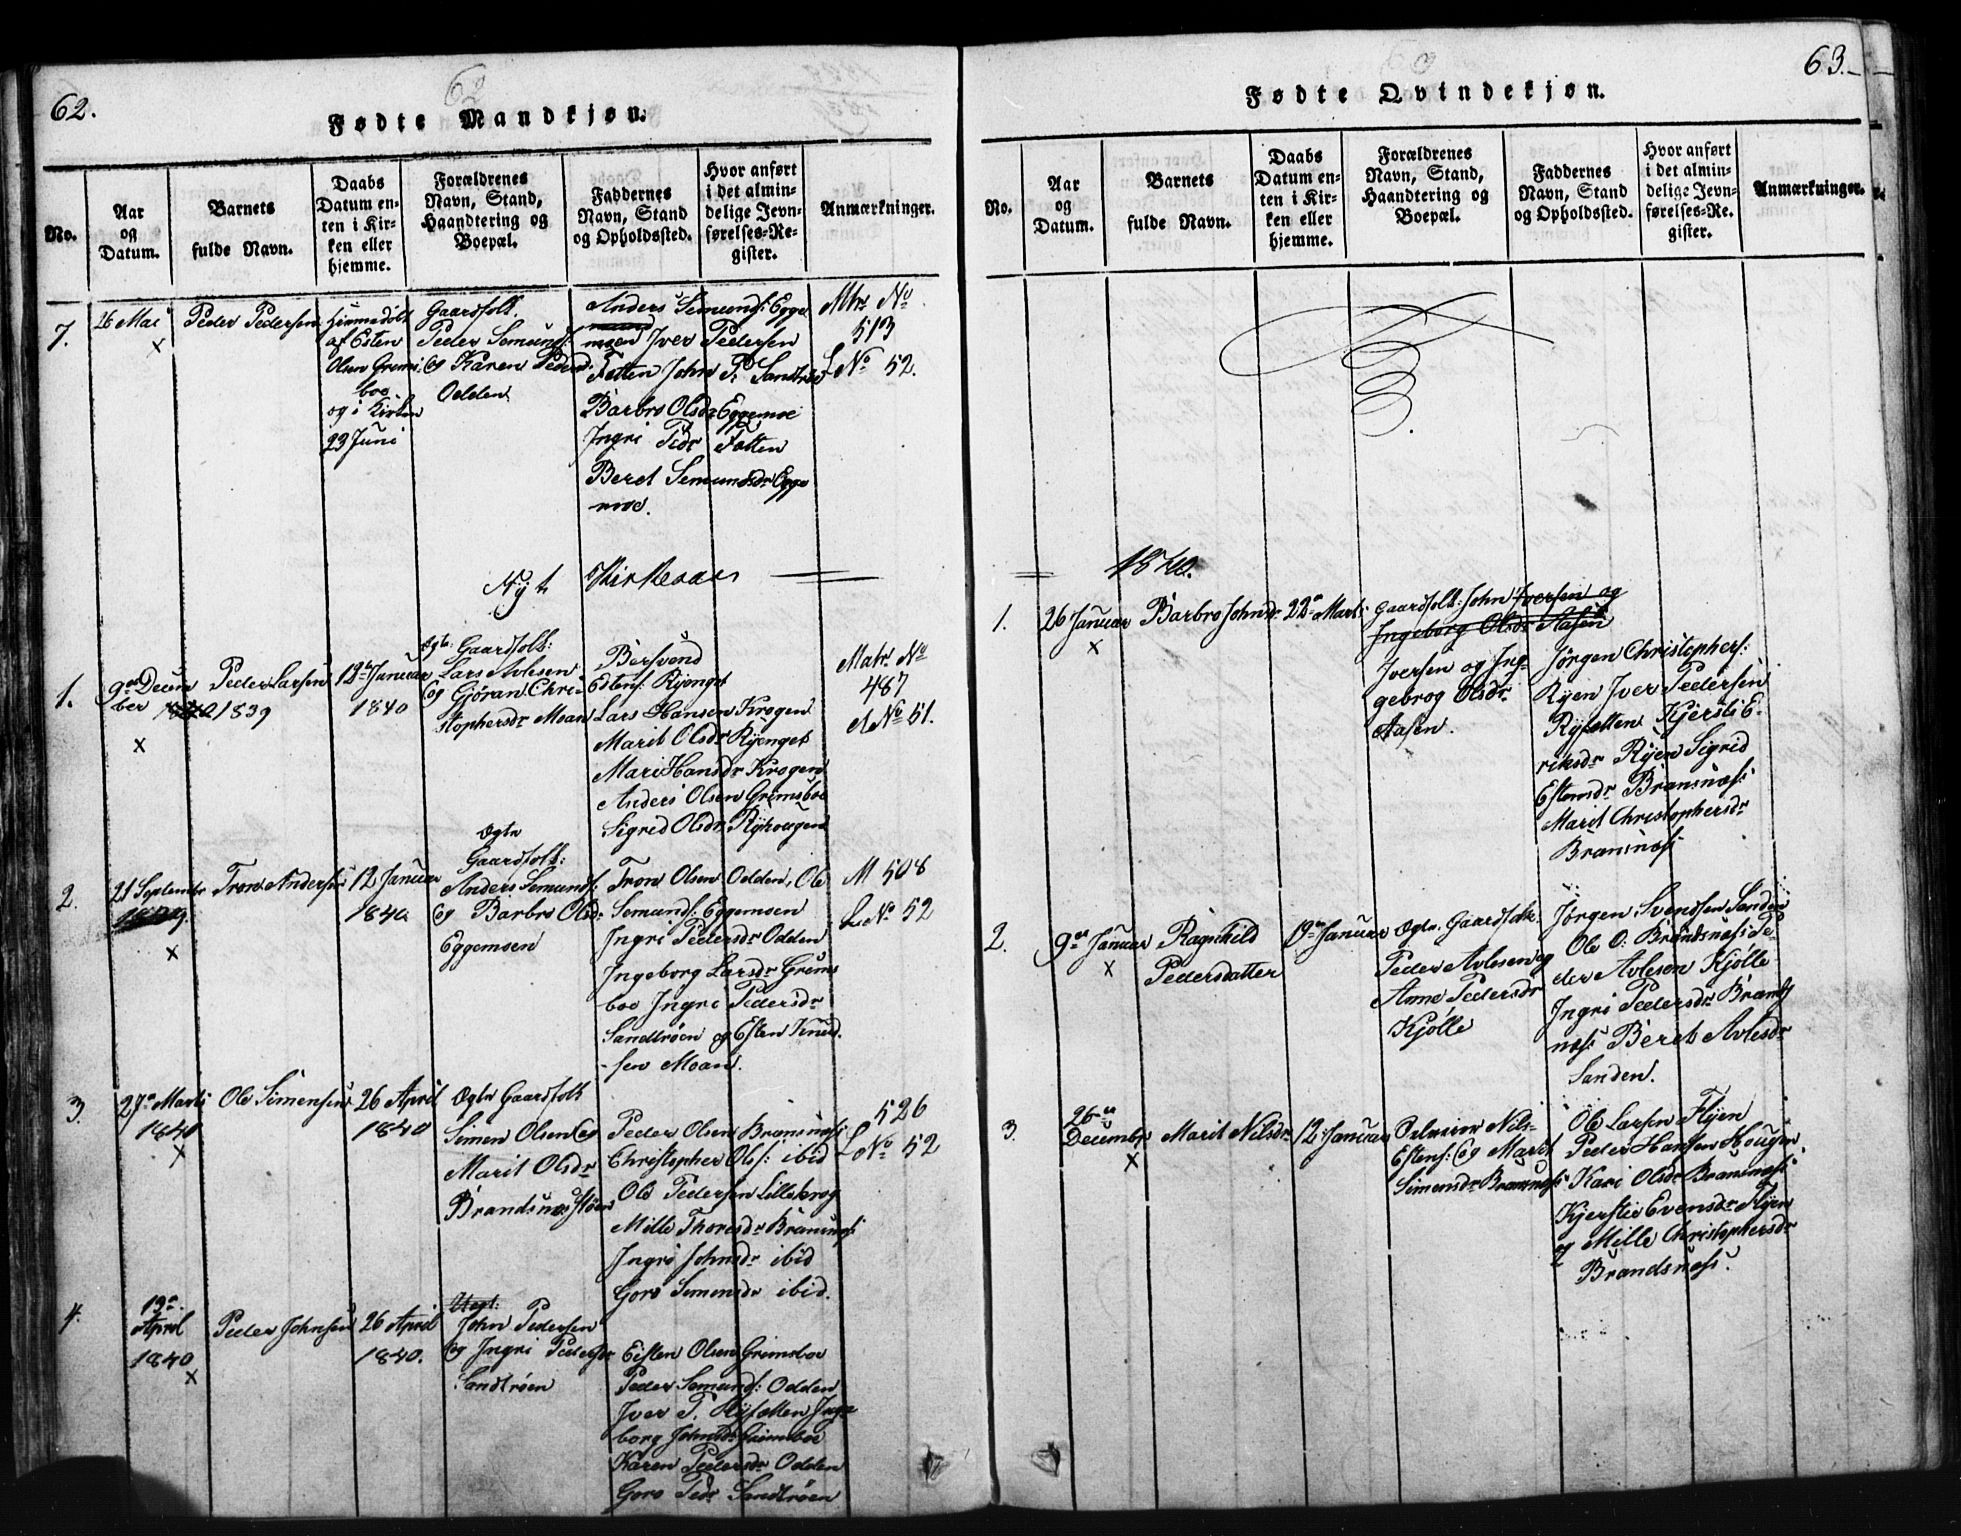 62.
Fødte Mandkjøn.
No.
Aar og Datum.
Barnets fulde Navn.
Daabs Datum enten i Kirken eller hjemme.
Forældrenes Navn, Stand, Haandtering og Boepæl.
Faddernes Navn, Stand og Opholdssted.
Hvor anført i det almindelige Jevnførelses-Register.
Anmærkninger.
7.
26 Mai
x
Peder Pedersen
Hjemedøbt
af Esten
Olsen Grims
boe
og i Kirken
23 Juni
Gaardfolk.
Peder Semunds:
og Karen Peders
Odden
Anders Semunds: Egge
moen Iver Pedersen
Fætten John P. Sandtrøe
Barbro Olsdr Eggemoe
Ingri Pedr Fætten
Beret Semundsdr Egge
moe.
Mtr. No
513
L No 52.
Nyt Kirkeaar
1.
9de Decem
ber 1839
x
Peder Larsen
12te Januar
1840
Ægte: Gaardfolk:
Lars Avlesen
og Gjøran Chri
stophersdr Moan
Bersvend
Estens: Ryenget
Lars Hansen Krogen
Marit Olsdr Ryenget
Mari Hansdr Krogen
Anders Olsen Grimsboe
Sigrid Olsdr Ryhougen
Matr. No
487
L No 51.
2.
21 September
1839.
x
Tron Andersen
12 Januar
1840
Ægte
Gaardfolk:
Anders Semunds:
og Barbro Olsdr
Eggemoen
Tron Olsen Odden, Ole
Semunds: Eggemoen
Ingri Pedersdr Odden
Ingeborg Larsdr Grims
boe Ingri Pedersdr
Sandtrøen og Esten Knud
sen Moan.
M 508
L No 52
3.
27de Marti
1840
x
Ole Simensen
26 April
1840
Ægte Gaardfolk
Simen Olsen og
Marit Olsdr
Brandsnæsstøen
Peder Olsen Bransnæs
Christopher Ols: ibid
Ole Pedersen Lillekrog
Mille Thoresdr Bransnæs
Ingri Johnsdr ibid
Goro Simensdr ibid.
526
L No 52
4.
19de
April
1840
x
Peder Johnsen
26 April
1840.
Uegt:
John Pedersen
og Ingri Pedersdr
Sandtrøen
Eisten Olsen Grimsboe
Peder Semunds: Odden
Iver P. Ryfætten Inge
borg Johnsdr Grimsboe
Karen Pedersdr Odden
Goro Pedr Sandtrøen
63.
Fødte Qvindekjøn.
No.
Aar og Datum.
Barnets fulde Navn.
Daabs Datum enten i Kirken eller hjemme.
Forældrenes Navn, Stand, Haandtering og Boepæl.
Faddernes Navn, Stand og Opholdssted.
Hvor anført i det almindelige Jevnførelses-Re.gister.
Anmærkninger.
1840.
1.
26 Januar
x
Barbro Johnsdr
22de Marti
Gaardfolk: John Iversen og
Ingeborg Olsdr Aasen
Iversen og Ing-
gebrog Olsdr
Aasen.
Jørgen Christophers:
Ryen Iver Pedersen
Ryfætten Kjersti E-
riksdr Ryen Sigrid
Estensdr Bransnæs
Marit Christophersdr
Bransnæs
2.
9de Januar
x
Ragnhild
Pedersdatter
19de Januar
Ægte. Gaardfolk.
Peder Avlesen og
Anne Pedersdr
Kjølle
Jørgen Svendsen Sanden
Ole O. Brandsnæs Pe-
der Avlesen Kjølle
Ingri Pedersdr Brands
næs Beret Avlesdr
Sanden.
3.
26de
Decembr
x
Marit Nilsdr
12 Januar
Nils
Estens: og Marit
Simensdr Bransnæs
Ole Larsen Flyen
Peder Hansen Hougen
Kari Olsdr Bransnæs
Kjerstie Evensdr Flyen
og Mille Christophersdr
Brandsnæs.